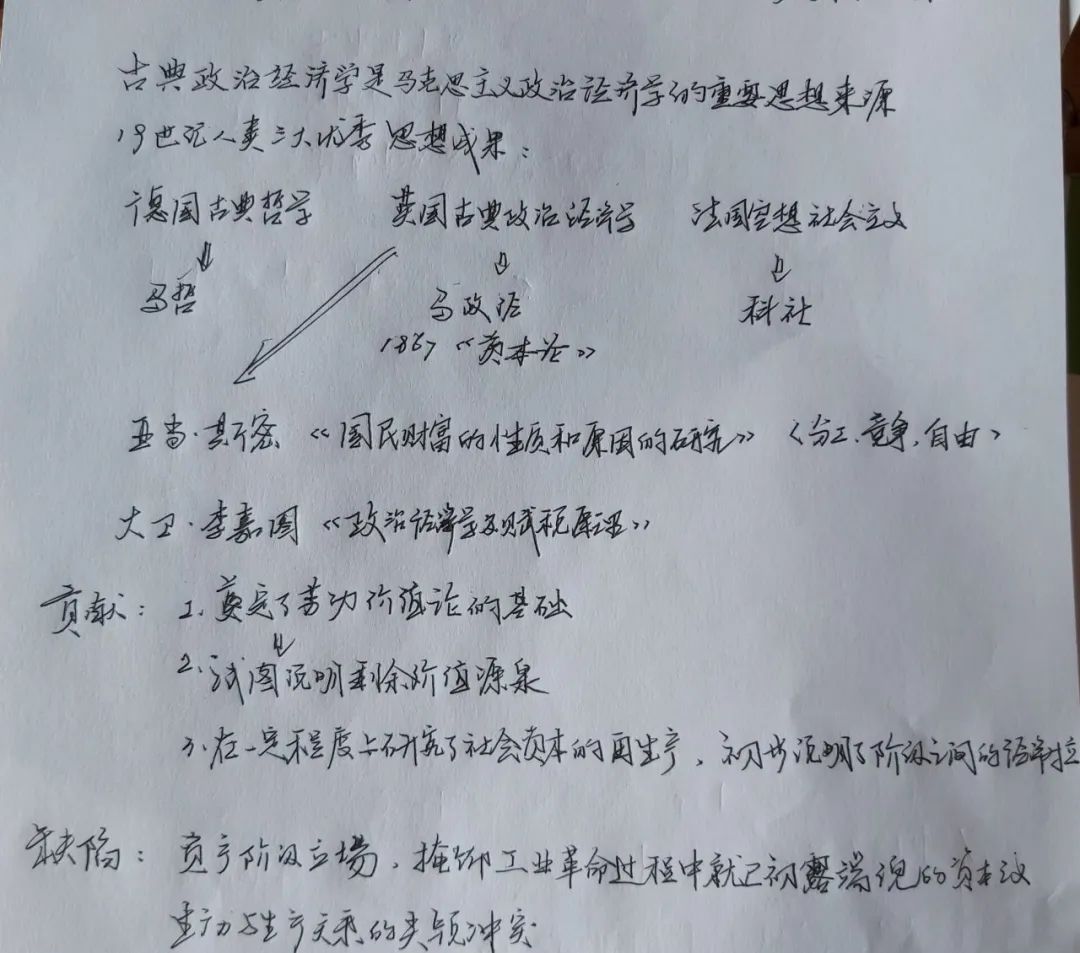 古典政治经济学是马克思主义政治经济学的重要思想来源
19世纪人类三大优秀思想成果：
德国古典哲学 英国古典政治经济学 法国空想社会主义
⇓ ⇓ ⇓
马哲 马政经 科社
1867《资本论》
亚当·斯密《国民财富的性质和原因的研究》〈分工、竞争、自由〉
大卫·李嘉图《政治经济学及赋税原理》
贡献：1、奠定了劳动价值论的基础
⇓
2、试图说明剩余价值源泉
3、在一定程度上研究了社会资本的再生产，初步说明了阶级之间的经济
缺陷：资产阶级立场，掩饰工业革命过程中就已初露端倪的资本
与生产关系的类 冲突